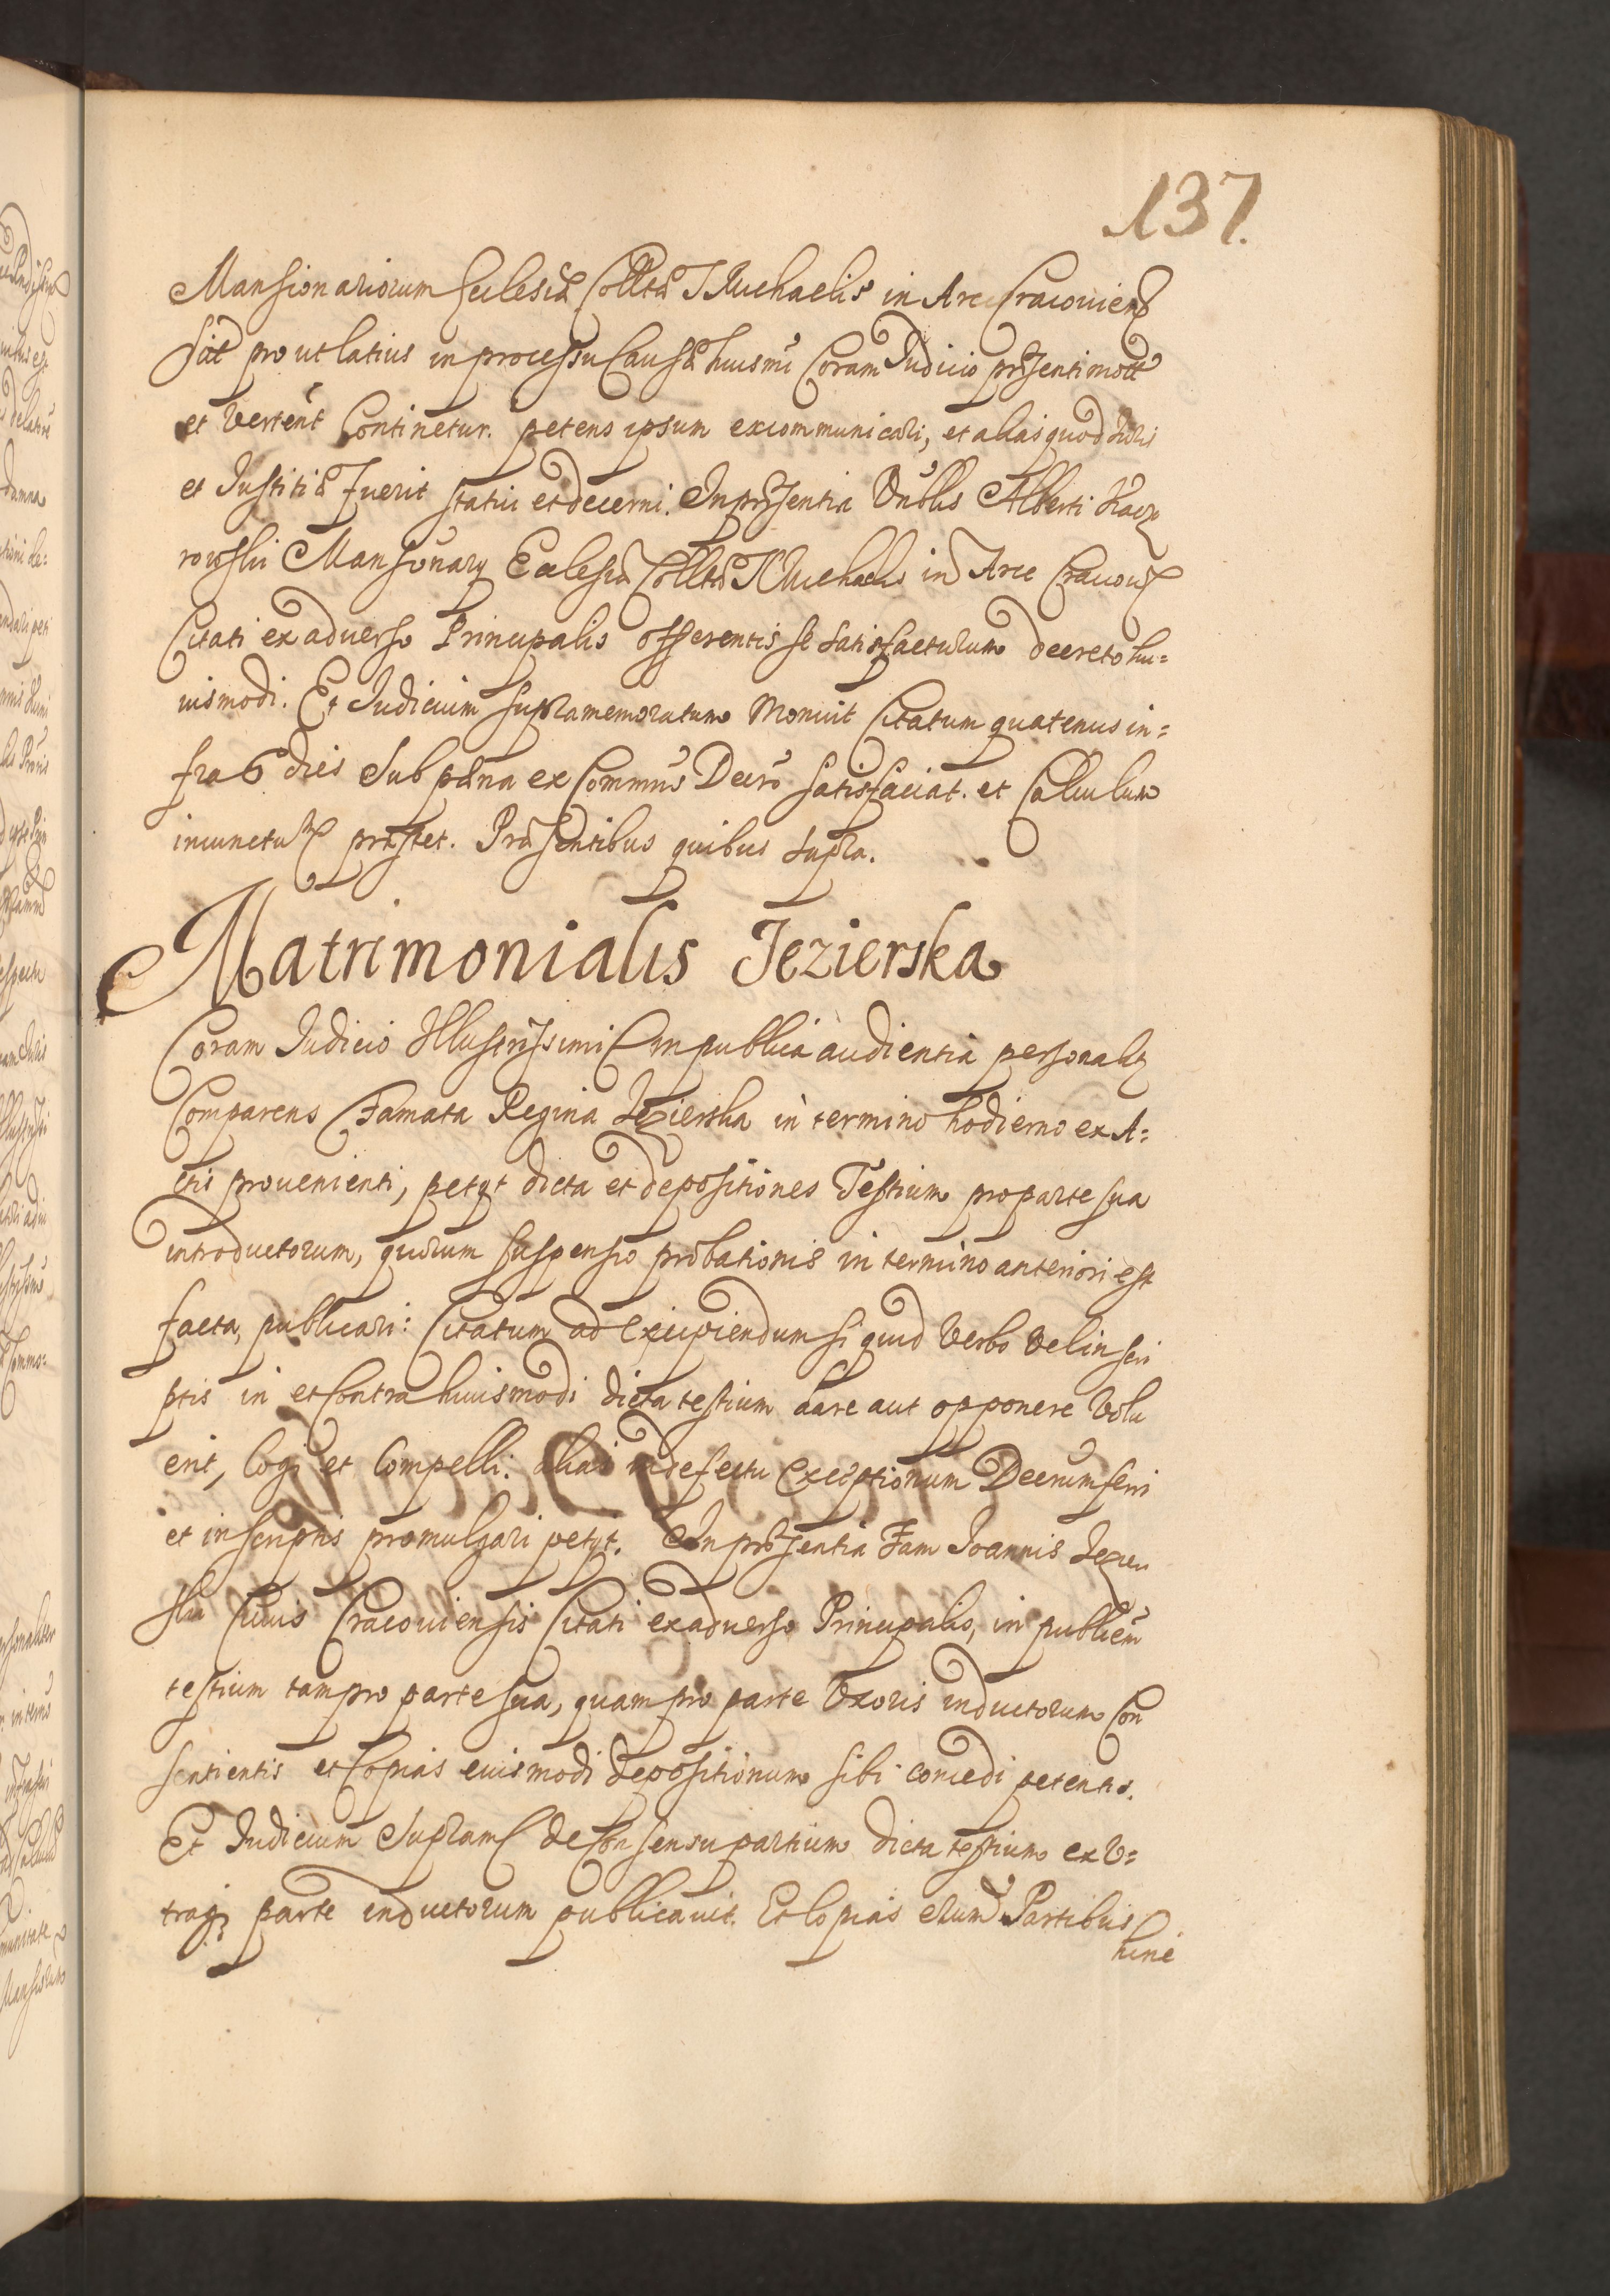 137.
Mansionariorum Ecclesiæ Colltæ S Michaelis in Arce Cracovien
Siat prout latius in processu Causæ huismi Coram Judicio præsenti mott
et vertent Continetur. petens ipsum excommunicari, et alias quod Juris
et Justitiæ fuerit statui et decerni. In præsentia Vnblis Alberti Kacz
rowskii Mansionarÿ Ecclesiæ Colltæ S Michaelis in Arce Cracovien
Citati ex adverso Principalis offerentis se satisfacturum decreto hu=
iusmodi. Et Judicium supramemoratum Monuit Citatum quatenus in=
fra 6 dies Sub pæna ex Commnis Decro satisfaciat. et Calculum
iniunctum præstet. Præsentibus quibus supra.
Matrimonialis Jezierska
Coram Judicio Illustrissimi in publica audientia personalr
Comparens Famata Regina Jezierska in termino hodierno ex A=
ctis provenienti, petÿt dicta et depositiones Testium pro parte sua
introductorum, quorum suspensio probationis in termino anteriori est
facta, publicari: Citatum ad Excipiendum si quid Verbo vel in scri
ptis in et Contra huiusmodi dicta testium dare aut opponere Volu
erit, Cogi et Compelli: alias in defectu Exceptionum Decrum ferri
et in scriptis promulgari petÿt. In præsentia Fam Joannis Jezier
skii Civis Cracoviensis Citati ex adverso Principalis, in publicem
testium tam pro parte sua, quam pro parte Vxoris inductorum Con
sentientis et Copias eiusmodi depositionum sibi concedi petentis.
Et Judicium Supram de Consensu partium dicta testium ex V=
traq3 parte inductorum publicavit. Et Copias eorum Partibus
hinc